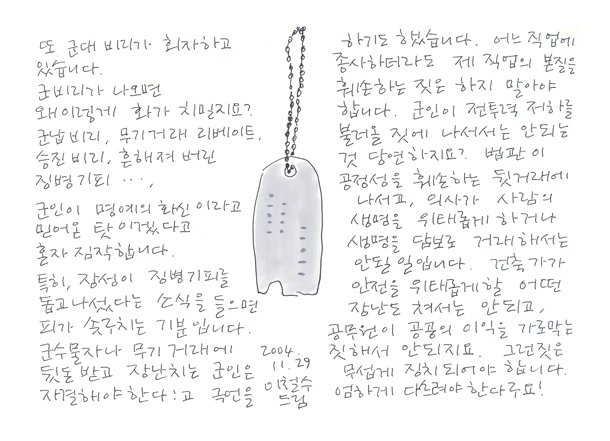 또 군대 비리가 회자하고
있습니다.
군비리가 나오면
왜이렇게 화가 치밀지요?
군납비리, 무기거래 리베이트,
승진비리, 흔해져 버린
징병기피 ...,
군인이 명예의 화신이라고
믿어온 탓이겠다고
혼자 짐작합니다.
특히, 장성이 징병기피를
돕고나섰다는 소식을 들으면
피가 솟구치는 기분입니다.
군수물자나 무기거래에
뒷돈받고 장난치는 군인은
자결해야한다!고 극언을
하기도 했습니다. 어느직업에
종사하더라도 제 직업의 본질을
훼손하는 짓은 하지 말아야
합니다. 군인이 전투력 저하를
불러올 짓에 나서서는 안되는
것 당연하지요? 법관이
공정성을 훼손하는 뒷거래에
나서고, 의사가 사람의
생명을 위태롭게 하거나
생명을 담보로 거래해서는
안될일입니다. 건축가가
안전을 위태롭게할 어떤
장난도 쳐서는 안되고,
공무원이 공공의 이익을 가로막는
짓해서 안되지요. 그런짓은
무섭게 징치되어야 합니다.
엄하게 다스려야한다구요!
2004.
11.29
이철수
드림